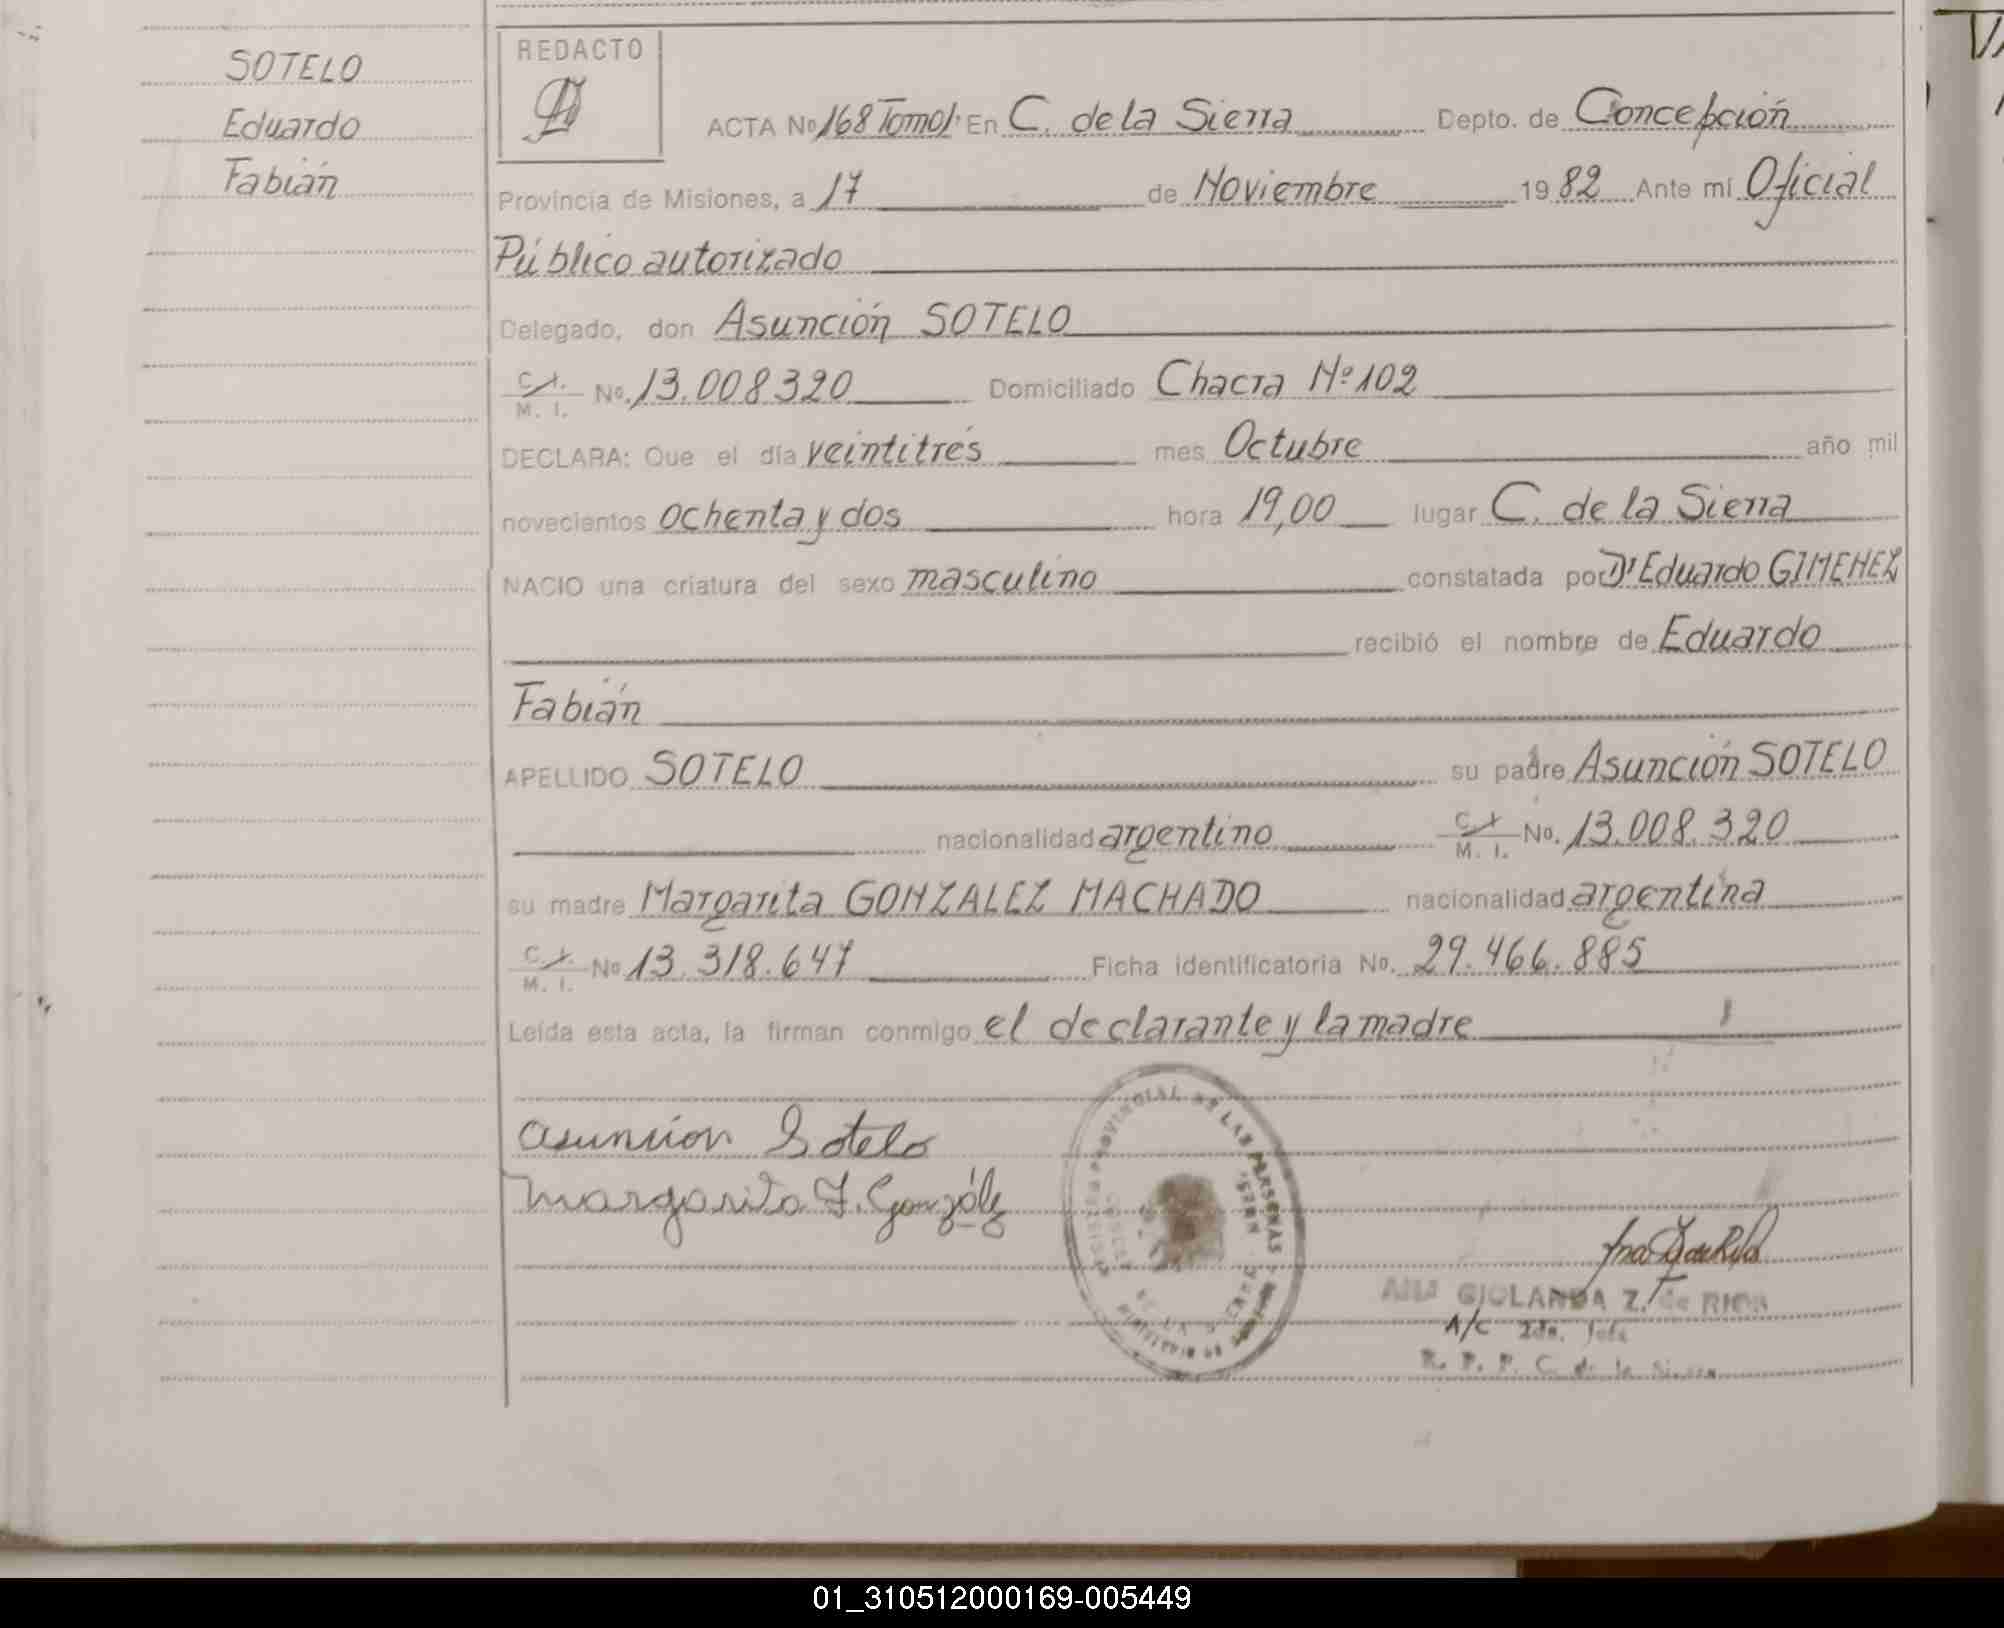 SOTELO
Eduardo
Fabián
REDACTO
ACTA No 168 Tomo I En C. de la Sierra Depto. de Concepción
Provincia de Misiones, a 17 de Noviembre 1982 Ante mí Oficial
Público autorizado
Delegado, don Asunción SOTELO
C. I. / M. I. No. 13.008320 Domiciliado Chacra Nº 102
DECLARA: Que el día veintitrés mes Octubre año mil
novecientos ochenta y dos hora 19,00 lugar C. de la Sierra
NACIO una criatura del sexo masculino constatada por Dr Eduardo GIMENEZ
recibió el nombre de Eduardo
Fabián
APELLIDO SOTELO su padre Asunción SOTELO
nacionalidad argentino C. I. / M. I. No. 13.008.320
su madre Margarita GONZALEZ MACHADO nacionalidad argentina
C. I. / M. I. No 13.318.647 Ficha identificatoria No. 29.466.885
Leída esta acta, la firman conmigo el declarante y la madre
Asunción Sotelo
Margarita F. González
PROVINCIAL DE LAS PERSONAS
Z. T. de RIOS
A/C 2da. Jefe
R. P. P. C. de la Sierra
01_310512000169-005449